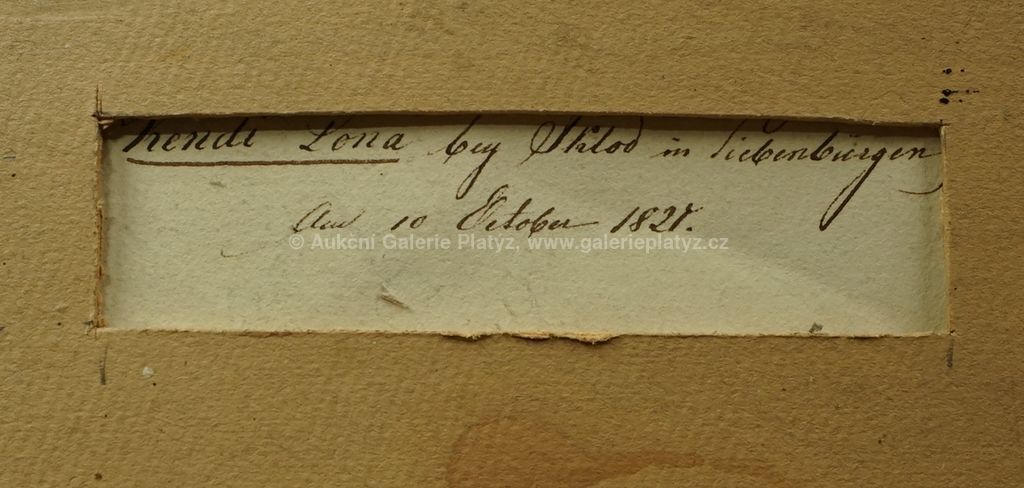 Kendi Lona bey Iklod in Siebenbürgen
Am 10 October 1827.
© Aukcní Galerie Platýz, www.galerieplatyz.cz